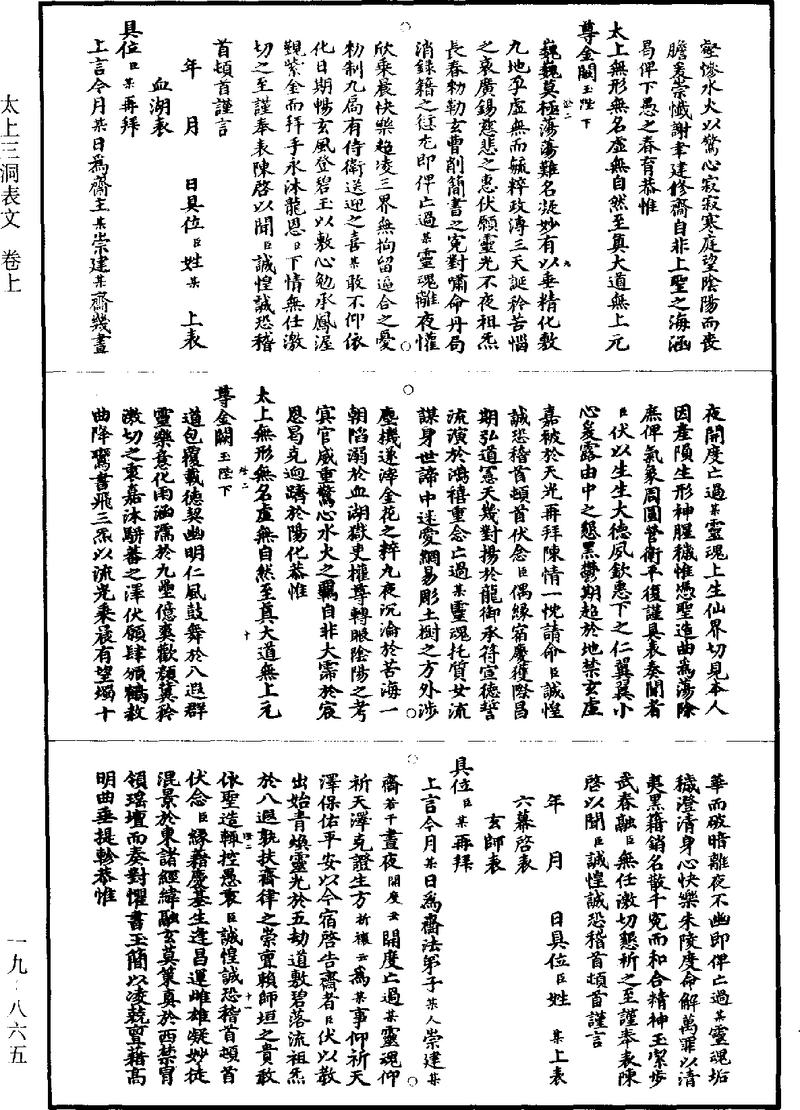 太上三洞表文　卷上
一九·八六五
壑慘水火以驚心寂寂寒庭望陰陽而喪
膽爰崇懺謝聿建修齋自非上聖之海涵
曷俾下愚之春育恭惟
太上無形無名虛無自然至真大道無上元
尊金闕玉陛下
巍巍莫極蕩蕩難名凝妙有以垂精化敷
九地孕虛無而毓粹政溥三天誕矜苦惱
之衷廣錫慈悲之惠伏願靈光不夜祖炁
長春勑勒玄曹削簡書之冤對嘯命丹局
消錄籍之愆尤即俾亡過某靈魂離夜懽
欣乘晨快樂趨凌三界無拘留逼合之憂
勑制九局有侍衛送迎之喜某敢不仰依
化日期暢玄風登碧玉以敷心勉承鳳渥
觀紫金而拜手永沐龍恩臣下情無任激
切之至謹奉表陳啓以聞臣誠惶誠恐稽
首頓首謹言
年　月　日具位臣姓某　上表
血湖表
具位臣某再拜
上言今月某日為齋主某崇建某齋幾晝
夜開度亡過某靈魂上生仙界切見本人
因產殞生形神腥穢惟憑聖造曲為蕩除
庶俾氣象周圓營衛平復謹具表奏聞者
臣伏以生生大德夙欽惠下之仁翼翼小
心爰露由中之懇黑鬱期超於地禁玄虛
嘉被於天光再拜陳情一忱請命臣誠惶
誠恐稽首頓首伏念臣偶緣宿慶獲際昌
期弘道憲天幾對揚於龍御承符宣德誓
流演於鴻禧重念亡過某靈魂托質女流
謀身世諦中迷愛網易彫玉樹之方外涉
塵機遂滓金花之粹九夜沉淪於苦海一
朝陷溺於血湖獄吏權尊轉眼陰陽之考
冥官威重驚心水火之羈自非大霈於宸
恩曷克迥躋於陽化恭惟
太上無形無名虛無自然至真大道無上元
尊金闕玉陛下
道包覆載德契幽明仁風鼓舞於八遐群
靈樂意化雨涵濡於九壘億爽歡顏冀矜
激切之衷嘉沐駢蕃之澤伏願肆頒鶴敕
曲降鸞書飛三炁以流光乘晨有望燭十
華而破暗離夜不幽即俾亡過某靈魂垢
穢澄清身心快樂朱陵度命解萬罪以清
夷黑籍銷名散千冤而和合精神玉潔步
武春融臣無任激切懇祈之至謹奉表陳
啓以聞臣誠惶誠恐稽首頓首謹言
年　月　日具位臣姓　某上表
六幕啓表
玄師表
具位臣某再拜
上言今月某日為齋法弟子某人崇建某
齋若干晝夜開度云開度亡過某靈魂仰
祈天澤克證生方祈禳云為某事仰祈天
澤保佑平安以今宿啓告齋者臣伏以教
出始青煥靈光於五劫道敷碧落流祖炁
於八遐孰扶齋律之崇亶賴師垣之貴敢
依聖造輒控愚衷臣誠惶誠恐稽首頓首
伏念臣緣藉慶基生逢昌運雌雄凝妙徒
混景於東諸經緯融玄莫策真於西禁冒
領瑤壇而奏對懼書玉簡以凌兢亶藉高
明曲垂提軫恭惟